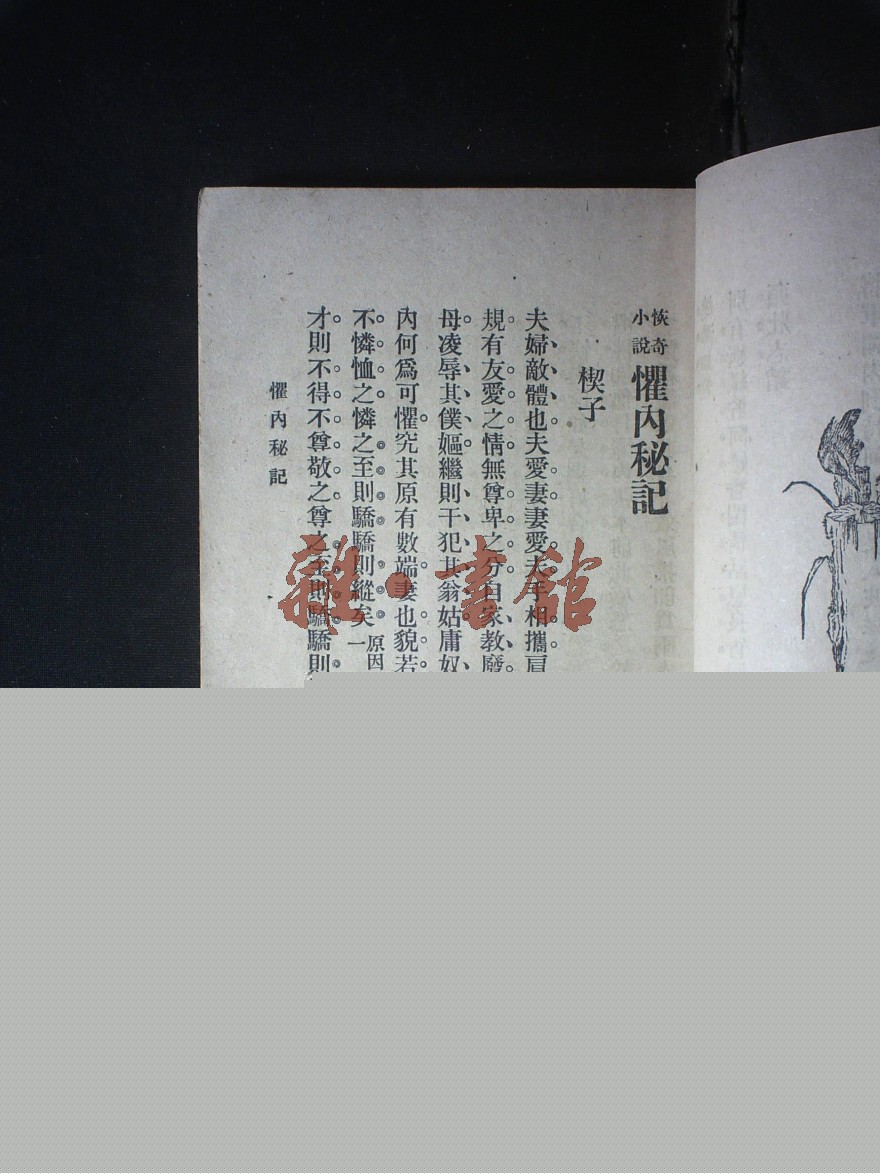 恢奇小說 懼內秘記
楔子
夫婦敵體也夫愛妻妻愛夫手相攜肩
規有友愛之情無尊卑之分自家教廢
母凌辱其僕嫗繼則干犯其翁姑庸奴
內何爲可懼究其原有數端妻也貌若
不憐恤之憐之至則驕驕則縱矣原因一
才則不得不尊敬之尊之至則驕驕則
懼內秘記
雜·書館